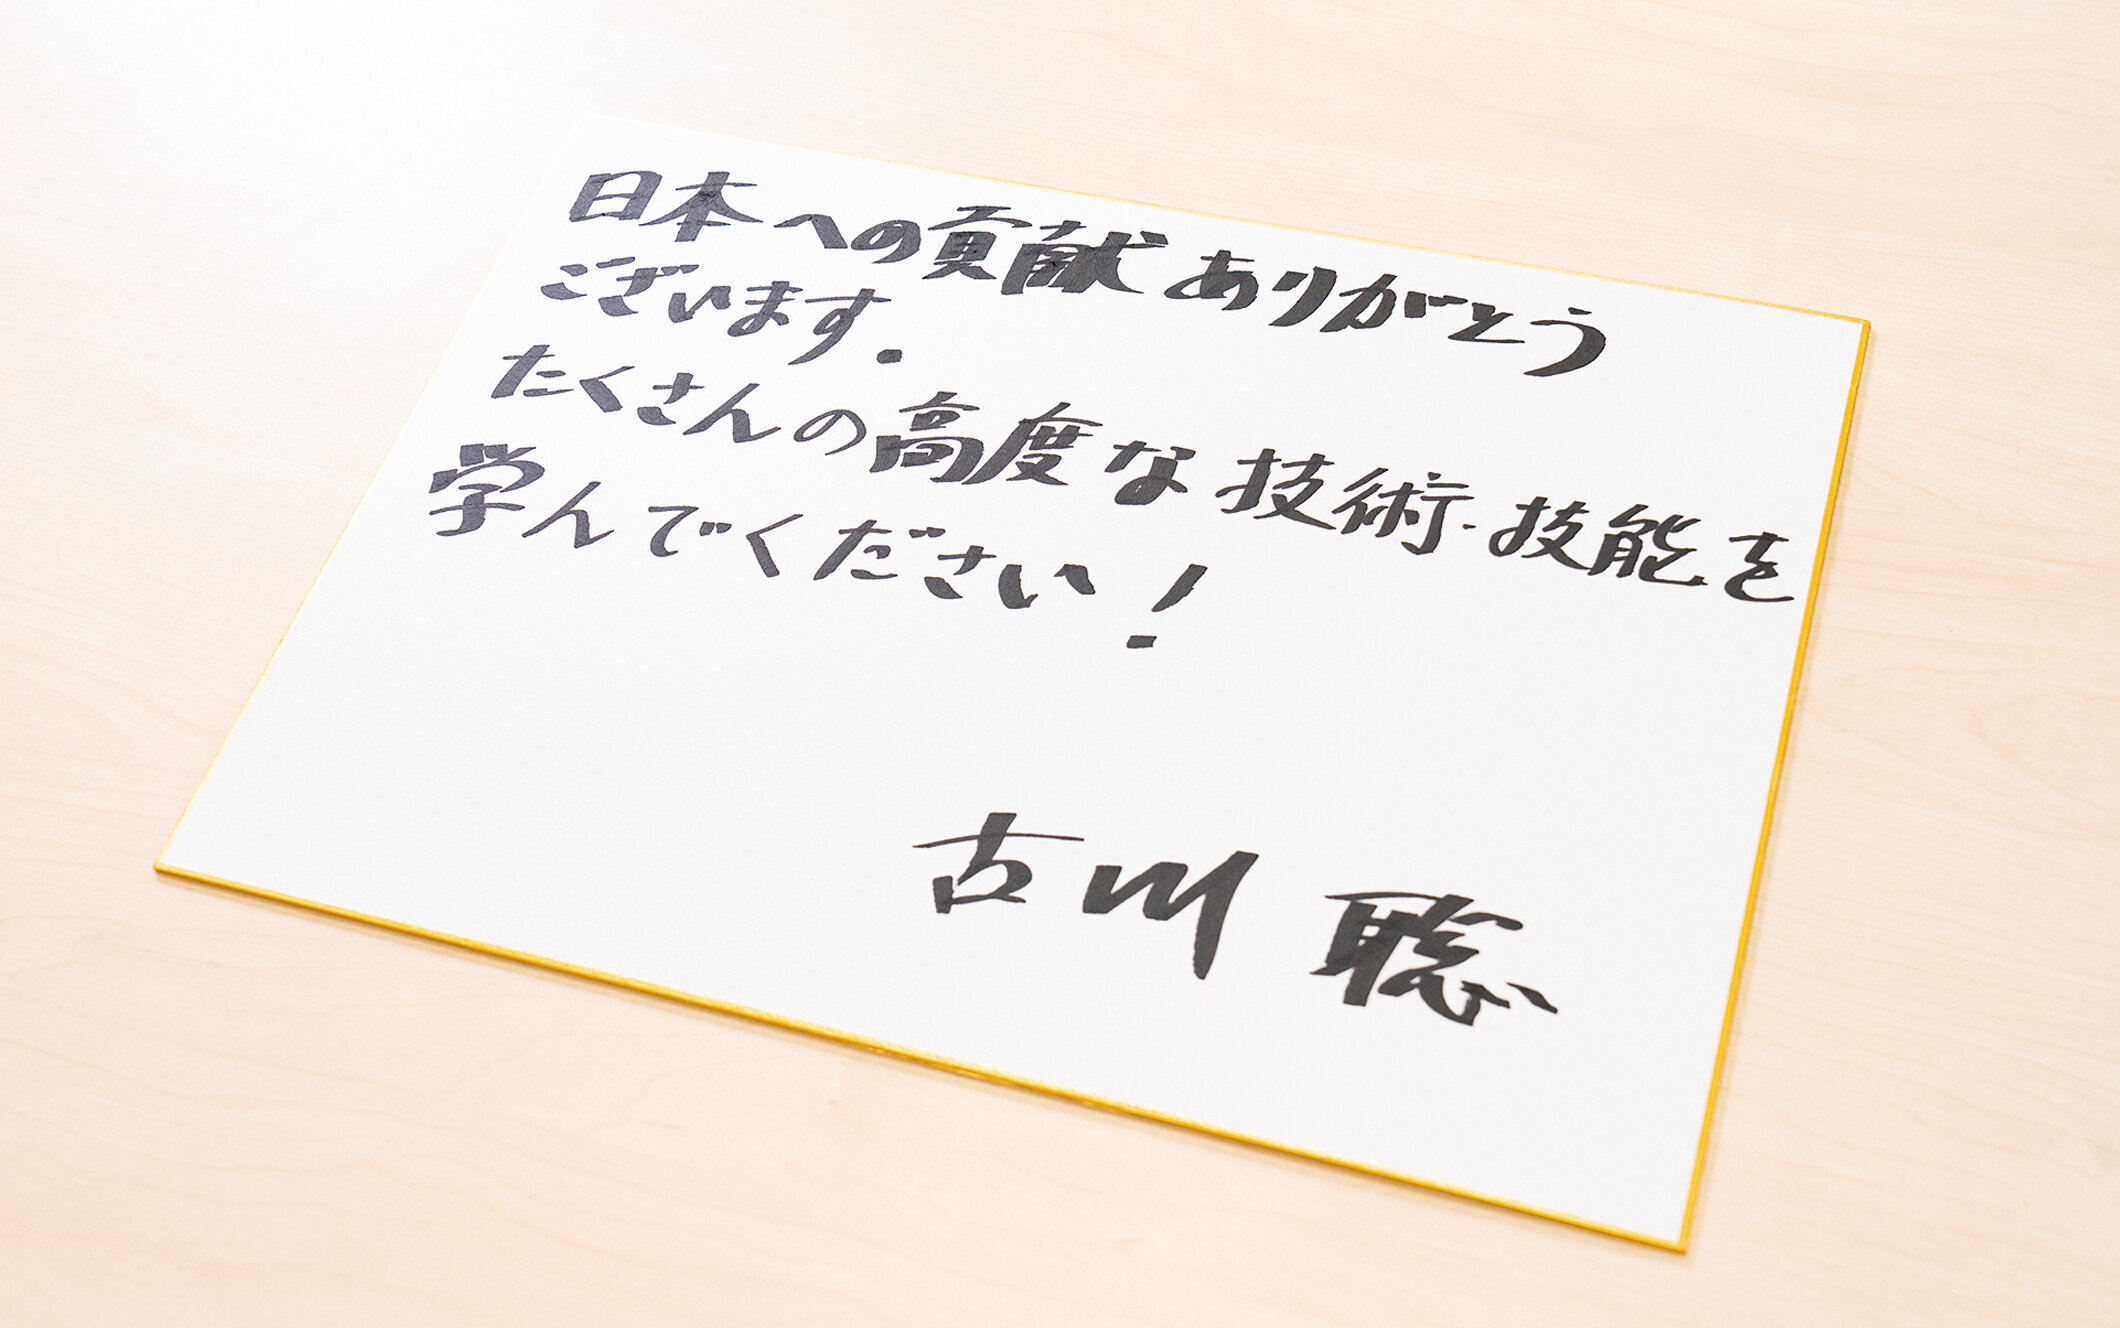 日本への貢献ありがとう
ございます.
たくさんの高度な技術・技能を
学んでください!
古川 聡